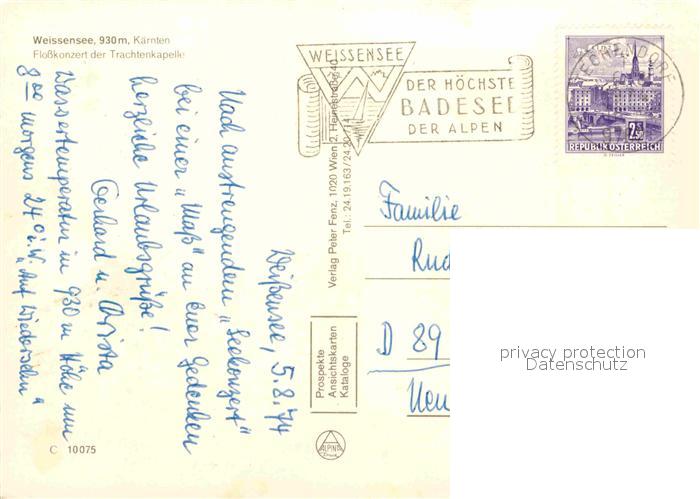 Weissensee, 930 m, Kärnten
Floßkonzert der Trachtenkapelle
Weißensee, 5.8.74
Nach anstrengendem „Seekonzert"
bei einer „Maß" an Euer Gedenken
herzliche Urlaubsgrüße!
Gerhard u. Christa
Wassertemperatur in 930 m Höhe um
8 00 morgens 24°
„Auf Wiedersehn"
C 10075
Verlag Peter Fenz, 1020 Wien 2, Heinestraße 40
Tel.: 24.19.163/24.22.114
Prospekte
Ansichtskarten
Kataloge
ALPINA
WEISSENSEE
DER HÖCHSTE
BADESEE
DER ALPEN
TECHENDORF
2.50
REPUBLIK ÖSTERREICH
Familie
Rud
D 89
privacy protection
Datenschutz